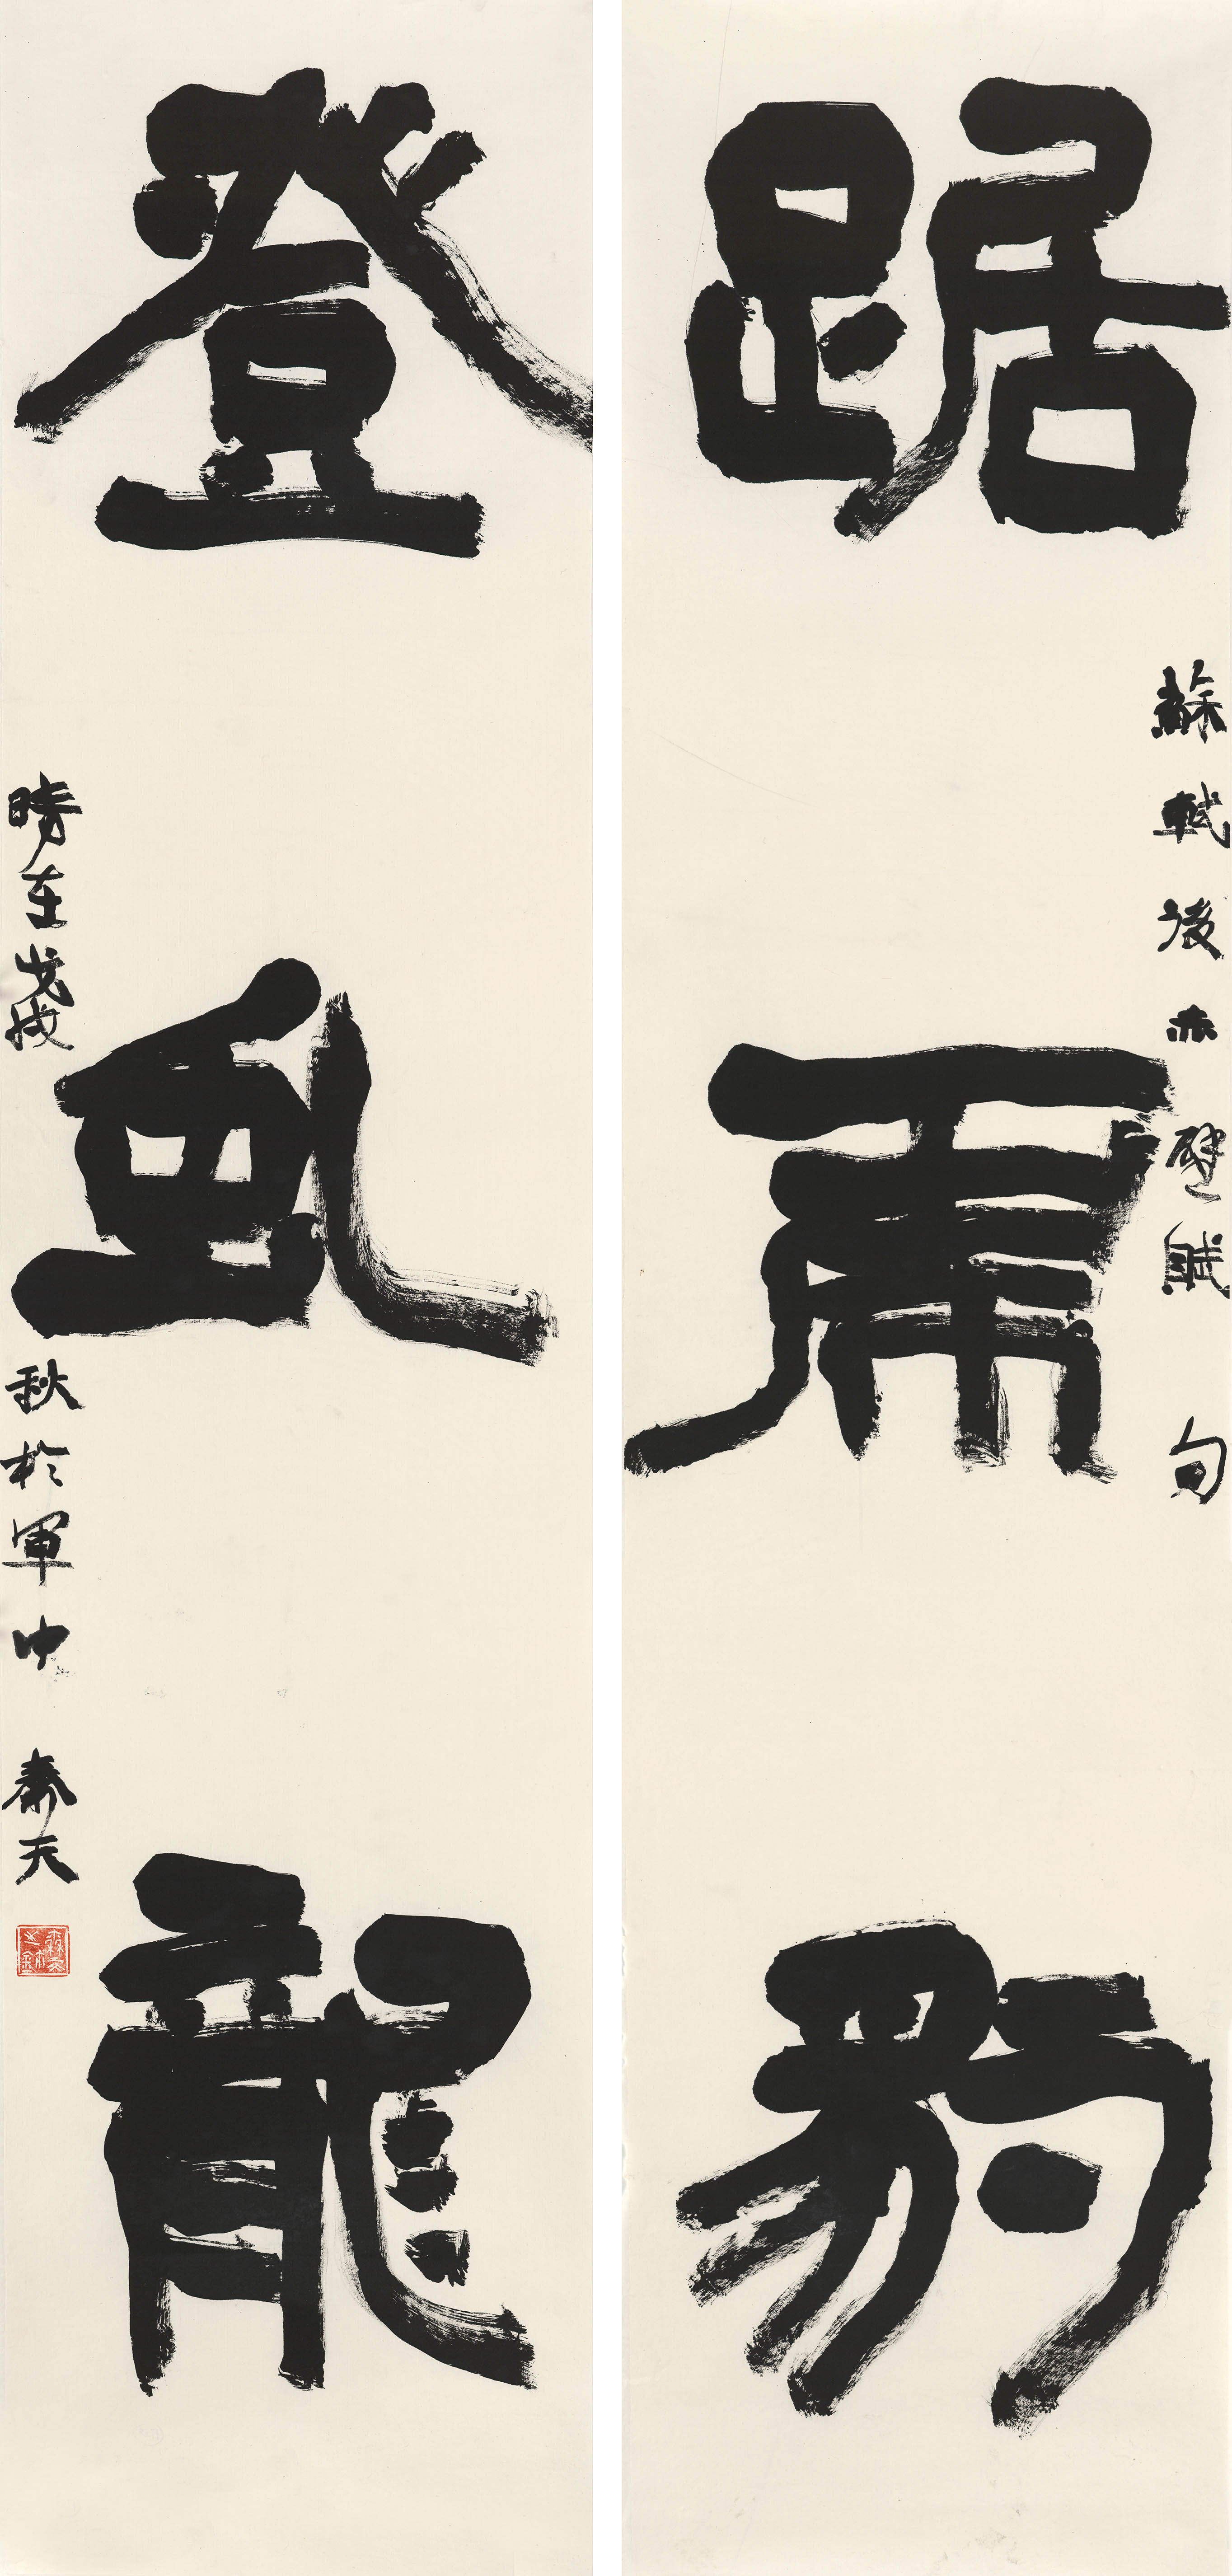 踞虎豹
蘇軾後赤壁賦句
登虬龍
時在戊戌秋於軍中 秦天